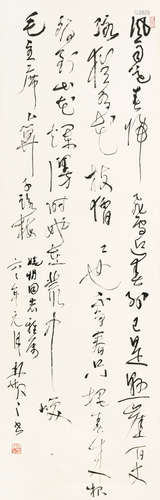 風雨送春歸飛雪迎春到已是懸崖百丈
冰猶有花枝俏俏也不爭春只把春來報
待到山花爛漫時她在叢中笑
毛主席卜算子詠梅
同志雅屬
年元月林散之書